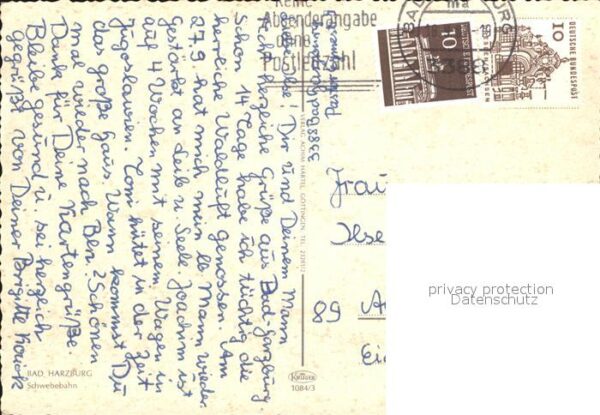 Keine
Absenderangabe
ohne
Postleitzahl
BAD HARZBURG
3388
10
10
DEUTSCHE BUNDESPOST
3388 Bad Harzburg
Liebe Ilse! Dir und Deinem Mann
sehr herzliche Grüße aus Bad-Harzburg.
Schon 14 Tage habe ich tüchtig die
herrliche Waldluft genossen. Am
27.9. hat mich mein lb. Mann wieder.
Gestärkt an Leib u. Seele. Joachim ist
auf 4 Wochen mit seinem Wagen in
Jugoslawien. Toni hütet in der Zeit
das große Haus. Wann kommst Du
mal wieder nach Bln.? Schönen
Dank für Deine Kartengrüße.
Bleibe gesund u. sei herzlich
gegrüßt von Deiner Brigitte
VERLAG ACHIM HARTEL GÖTTINGEN TEL.
Frau
Ilse
89 A
Ei
privacy protection
Datenschutz
BAD HARZBURG
Schwebebahn
1084/3